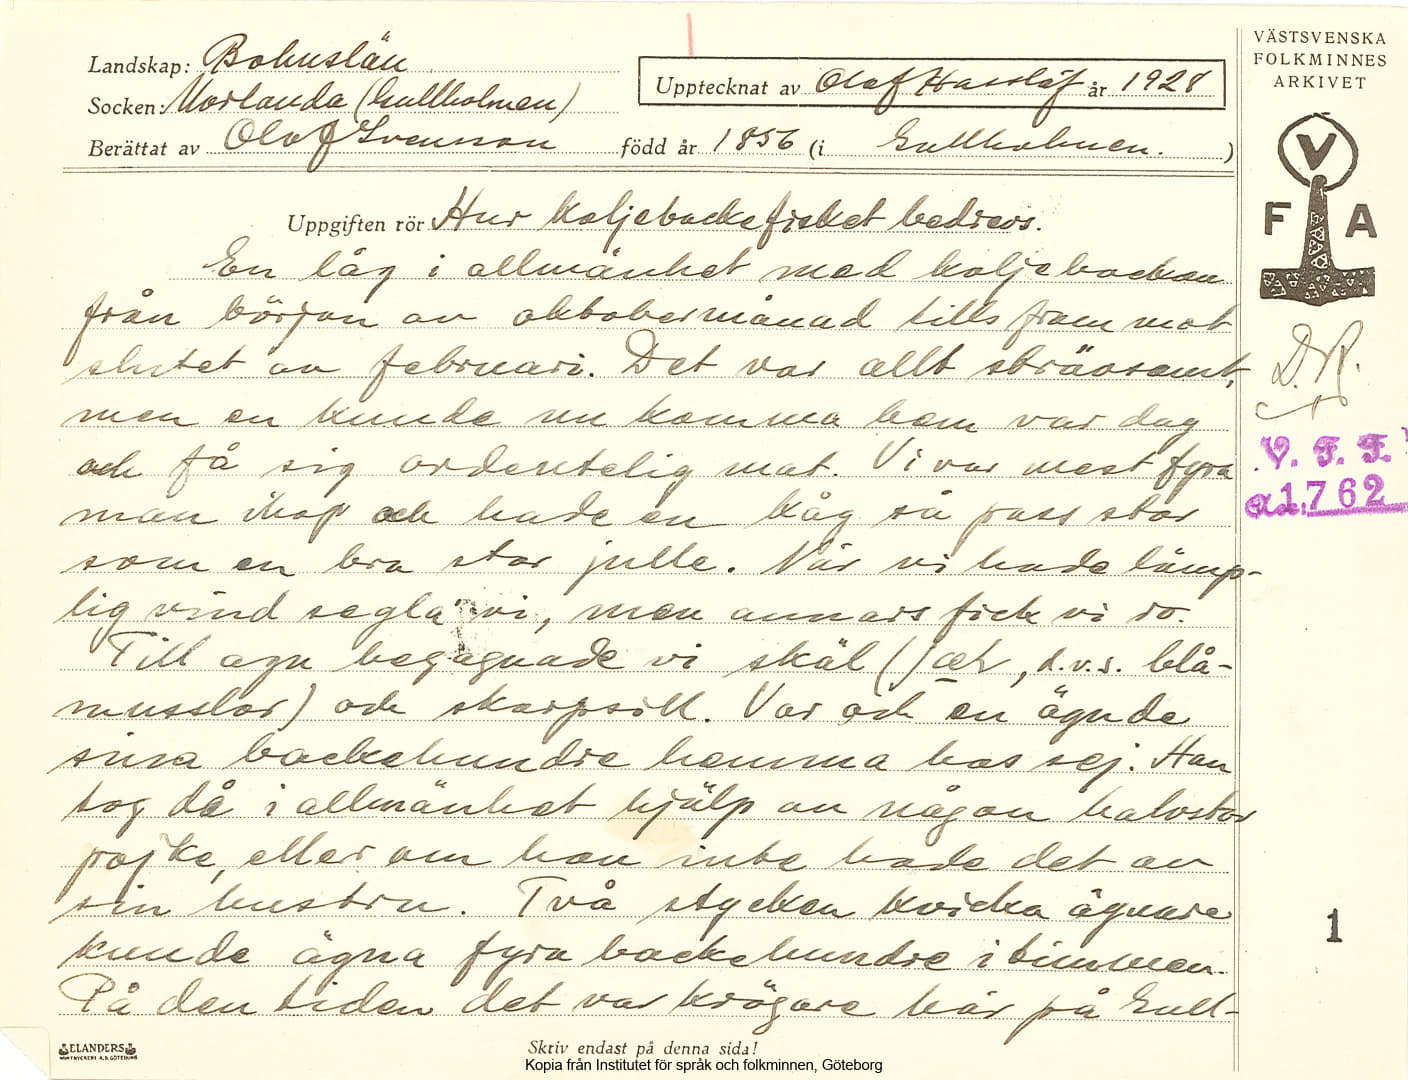 Landskap: Bohuslän
Socken: Morlanda (Gullholmen)
Upptecknat av Olof Hasslöf år 1928
Berättat av Olof Svensson född år 1856 (i Gullholmen. )
Uppgiften rör Hur koljebackefisket bedrevs.
En låg i allmänhet med koljebackan
från början av oktobermånad tills fram mot
slutet av februari. Det var allt strävsamt,
men en kunde nu komma hem var dag
och få sig ordentelig mat. Vi var mest fyra
man ihop och hade en kåg så pass stor
som en bra stor julle. När vi hade lämp-
lig vind segla vi, men annars fick vi ro.
Till agn begagnade vi skäl (, d.v.s. blå-
musslor) och skarpsill. Var och en ägnde
sina backehundre hemma hos sej. Han
tog då i allmänhet hjälp av någon halvstor
pojke, eller om han inte hade det av
sin hustru. Två stycken kvicka ägnare
kunde ägna fyra backehundre i timmen.
På den tiden det var krögare här på Gull-
Skriv endast på denna sida!
Kopia från Institutet för språk och folkminnen, Göteborg
ELANDERS
BOKTRYCKERI A.B. GÖTEBORG
VÄSTSVENSKA
FOLKMINNES
ARKIVET
V
F A
D.R.
V. F. F.
1762
1